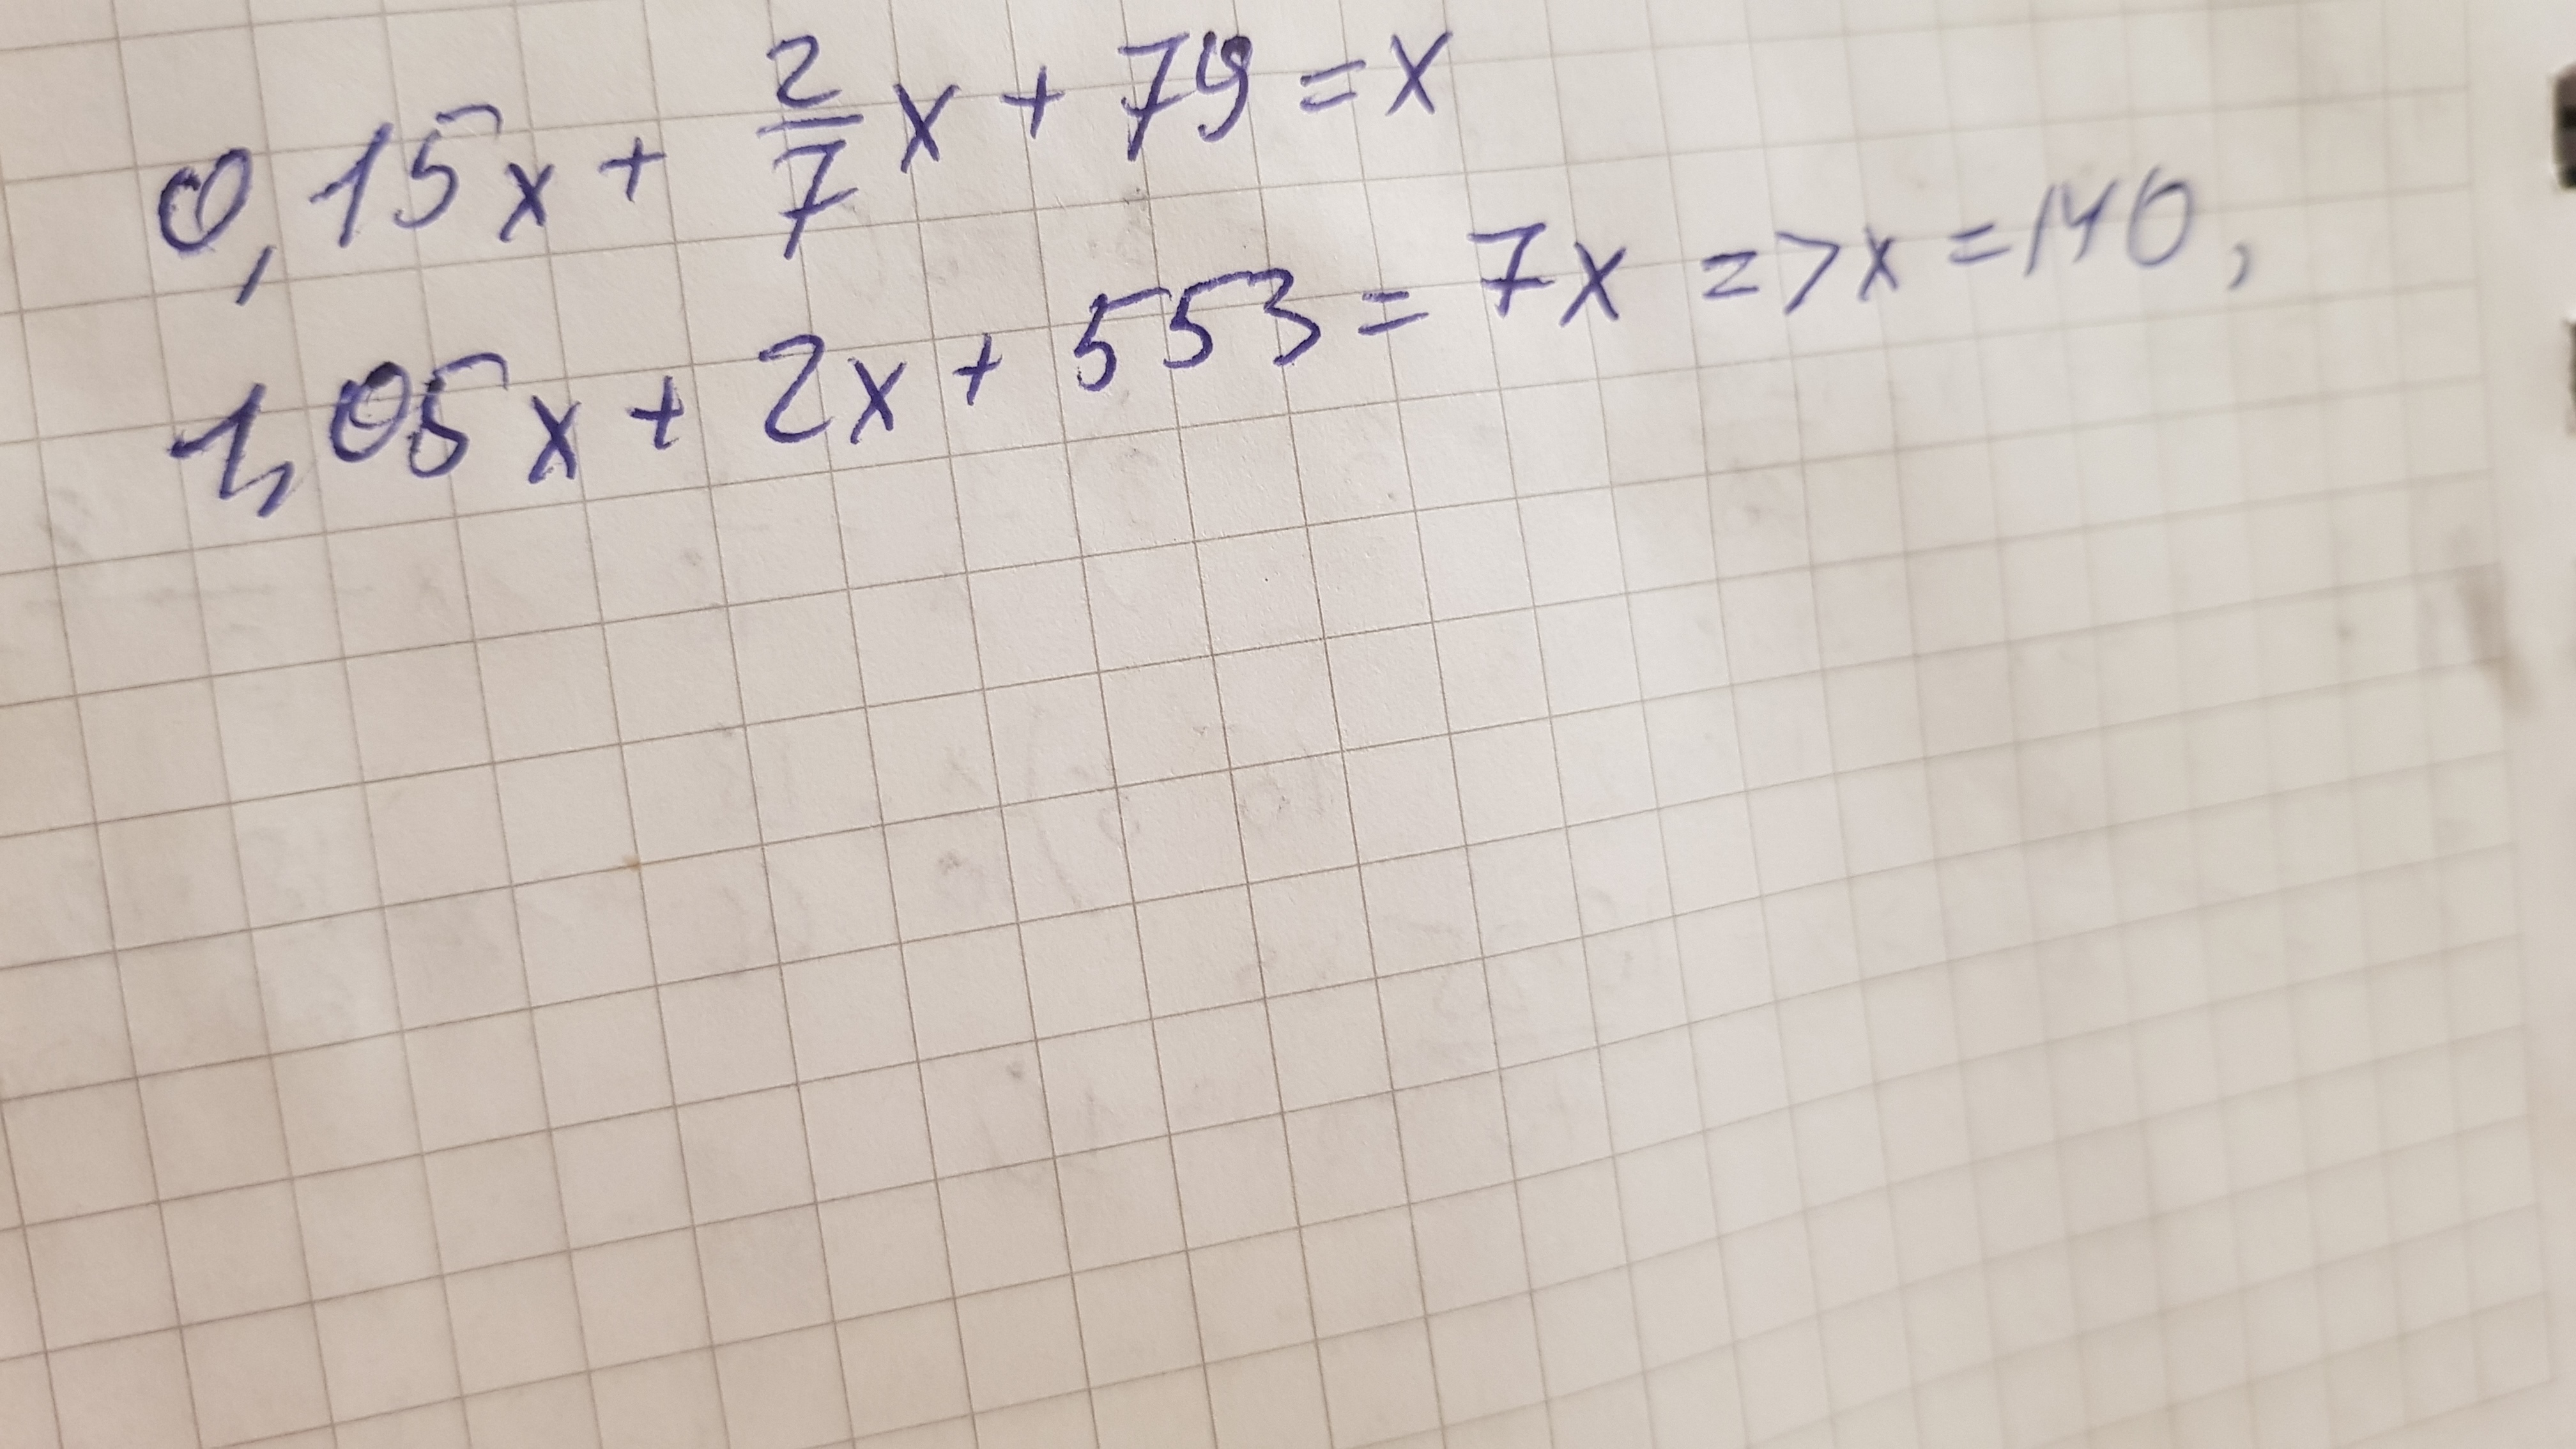 0,15x + 2/7 x + 79 = x
1,05x + 2x + 553 = 7x => x = 140,